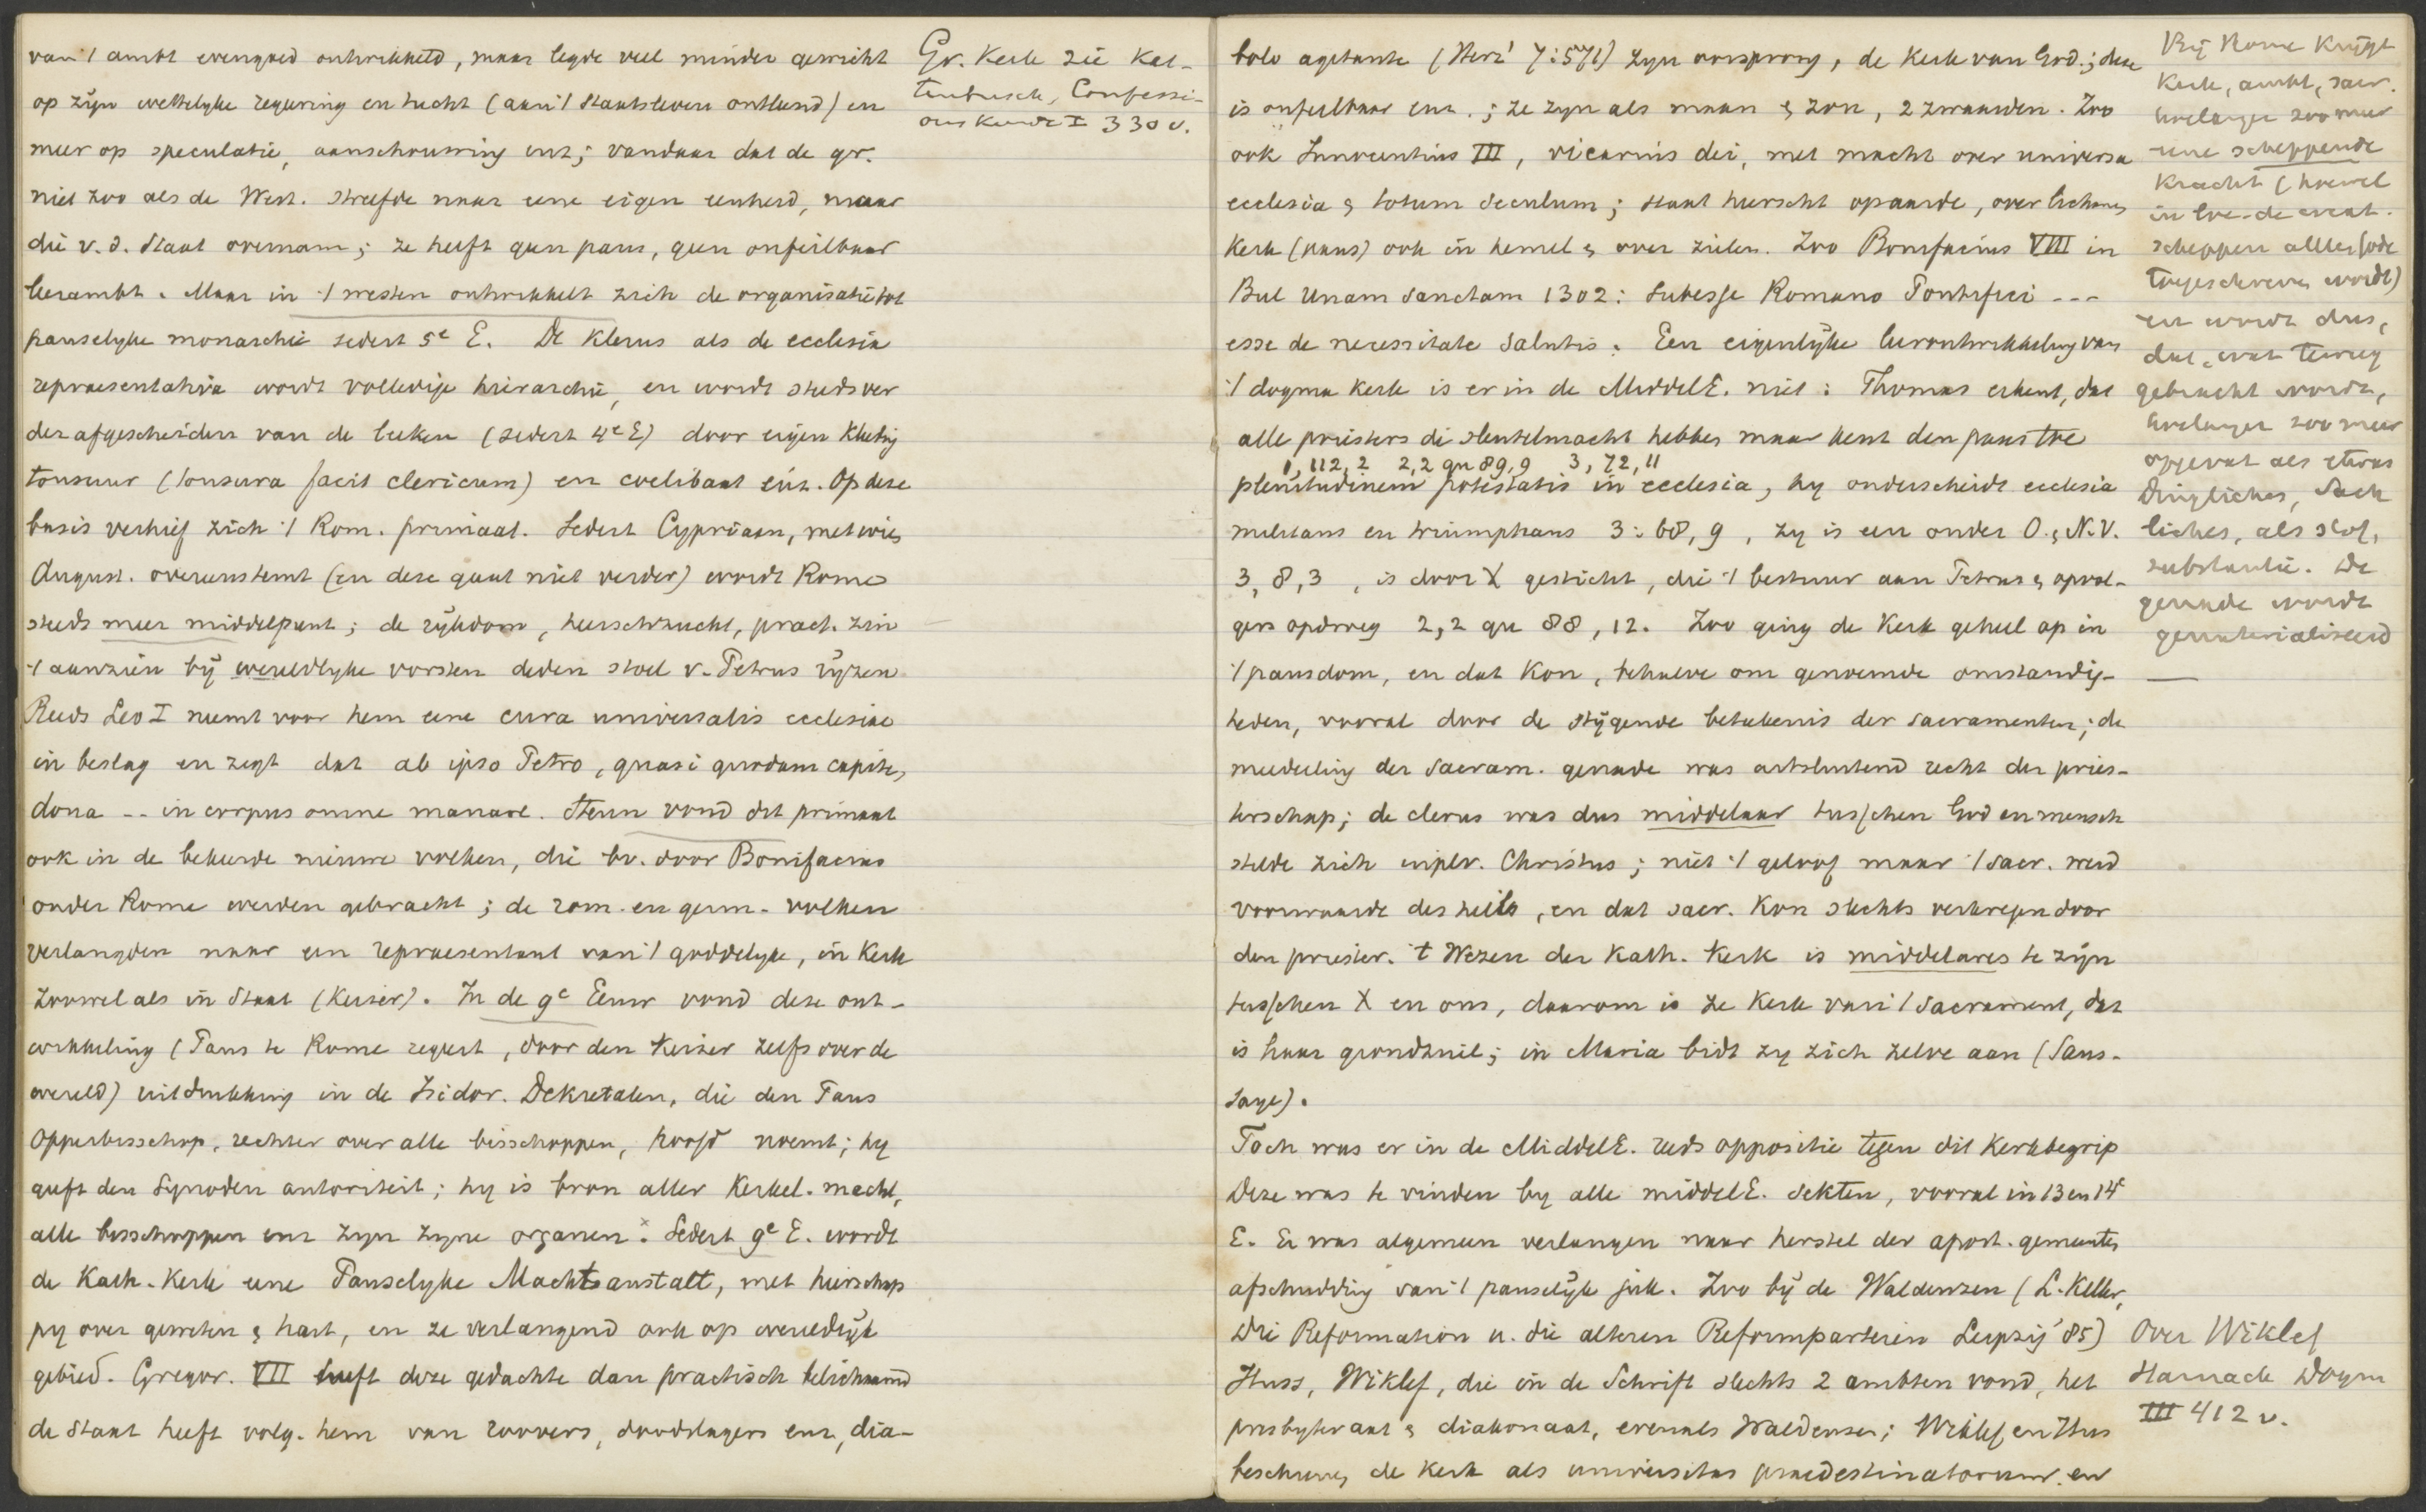 van 't ambt evengoed ontwikkeld, maar legde veel minder gewicht
op zijn wettelyke regeering en tucht (aan 't Staatsleven ontleend) en
meer op speculatie, aanschouwing enz; vandaar dat de gr.
niet zoo als de West. streefde naar eene eigen eenheid, maar
die v. d. Staat overnam; ze heeft geen paus, geen onfeilbaar
leerambt. Maar in 't westen ontwikkelt zich de organisatie tot
pauselyke monarchie sedert 5e E. De Klerus als de ecclesia
repraesentativa wordt volledige hierarchie, en wordt steeds ver
der afgescheiden van de leeken (sedert 4e E) door eigen Kleding
tonsuur (tonsura facit clericum) en coelibaat enz. Op deze
basis verhief zich 't Rom. primaat. Sedert Cypriaan, met wien
August. overeenstemt (en deze gaat niet verder) wordt Rome
steeds meer middelpunt; de rijkdom, heerschzucht, pract. zin
't aanzien bij wereldlyke vorsten deden stoel v. Petrus rijzen
Reeds Leo I neemt voor hem eene cura universalis ecclesiae
in beslag en zegt dat ab ipso Petro, quasi quodam capite,
dona -- in corpus omne manare. Steun vond dit primaat
ook in de bekeerde nieuwe volken, die bv. door Bonifacius
onder Rome werden gebracht; de rom. en germ. volken
verlangden naar een repraesentant van 't goddelyke, in Kerk
zoowel als in Staat (Keizer). In de 9e Eeuw vond deze ont-
wikkeling (Paus te Rome regeert, door den Keizer zelfs over de
wereld) uitdrukking in de Isidor. Dekretalen, die den Paus
Opperbisschop, rechter over alle bisschoppen, hoofd noemt; hy
geeft den Synoden autoriteit; hy is bron aller Kerkel. macht,
alle bisschoppen enz zyn zyne organen. Sedert 9e E. wordt
de Kath. Kerk eene Pauselyke Machtsanstalt, met heerschap
py over geweten & hart, en ze verlangend ook op wereldlijk
gebied. Gregor. VII heeft deze gedachte dan practisch belichaamd
de Staat heeft volg. hem van roovers, doodslagers enz, dia-
Gr. Kerk zie Kat-
tenbusch, Confessi-
onskunde I 330 v.
bolo agitante (Herz' 7:571) zyn oorsprong, de Kerk van God; deze
is onfeilbaar enz.; ze zyn als maan & zon, 2 zwaarden. Zoo
ook Innocentius III, vicarius dei, met macht over universa
ecclesia & totum seculum; staat heerscht op aarde, over lichamen
Kerk (paus) ook in hemel & over zielen. Zoo Bonifacius VIII in
Bul Unam Sanctam 1302: Subesse Romano Pontifici ---
esse de necessitate salutis. Een eigenlijke leerontwikkeling van
't dogma Kerk is er in de MiddelE. niet: Thomas erkent, dat
alle priesters de sleutelmacht hebben maar kent den paus toe
1, 112, 2 2,2 qu 89,9 3, 72, 11
plenitudinem potestatis in ecclesia, hy onderscheidt ecclesia
militans en triumphans 3: 68, 9, zy is een onder O. & N.V.
3, 8, 3, is door X gesticht, die 't bestuur aan Petrus & opvol-
gers opdroeg 2,2 qu 88, 12. Zoo ging de Kerk geheel op in
't pausdom, en dat Kon, behalve om genoemde omstandig-
heden, vooral door de stijgende beteekenis der sacramenten; de
mededeeling der sacram. genade was uitsluitend recht der pries-
terschap; de clerus was dus middelaar tusschen God en mensch
stelde zich in plv. Christus; niet 't geloof maar 't sacr. werd
voorwaarde des heils, en dat sacr. Kon slechts verkregen door
den priester. 't Wezen der Kath. Kerk is middelares te zijn
tusschen X en ons, daarom is ze Kerk van 't Sacrament, dat
is haar grondzuil; in Maria bidt zy zich zelve aan (Saus-
saye).
Toch was er in de MiddelE. reeds oppositie tegen dit Kerkbegrip
Deze was te vinden by alle middelE. Sekten, vooral in 13 en 14e
E. Er was algemeen verlangen naar herstel der apost. gemeente,
afschudding van 't pauselijk juk. Zoo bij de Waldenzen (L. Keller,
Die Reformation u. die älteren Reformparteien Leipzig '85)
Huss, Wiklef, die in de Schrift slechts 2 ambten vond, het
presbyteraat & diakonaat, evenals Waldenzen; Wiklef en Hus
beschouwen de Kerk als universitas praedestinatorum en
Bij Rome Krijgt
Kerk, ambt, sacr.
hoelanger zoo meer
eene scheppende
Kracht (hoewel
scheppen alleen God
toegeschreven wordt)
en wordt dus,
dat wat teweeg
gebracht wordt,
hoelanger zoo meer
opgevat als etwas
Dingliches, Sach
liches, als stof,
substantie. De
genade wordt
gematerialiseerd
Over Wiklef
Harnack Dogm
III 412 v.